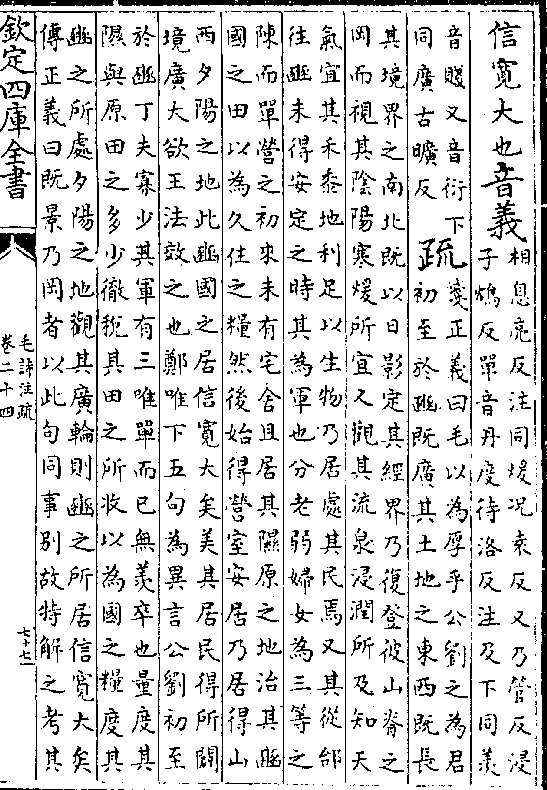 信寛大也音義相息亮反注同煖况袁反又乃管反浸
子鴆反單音丹度待洛反注及下同羨
音賤又音衍下
同廣古曠反
疏箋正義曰毛以為厚乎公劉之為君
初至於豳既廣其土地之東西既長
其境界之南北既以日影定其經界乃復登彼山脊之
岡而視其陰陽寒煖所宜又觀其流泉浸潤所及知天
氣宜其禾黍地利足以生物乃居處其民焉又其從邰
往豳未得安定之時其為軍也分老弱婦女為三等之
陳而單營之初來未有宅舍且居其隰原之地治其豳
國之田以為久住之糧然後始得營室安居乃居得山
西夕陽之地此豳國之居信寛大矣美其居民得所闢
境廣大欲王法效之也鄭唯下五句為異言公劉初至
於豳丁夫寡少其軍有三唯單而已無羨卒也量度其
隰與原田之多少徹稅其田之所收以為國之糧度其
豳之所處夕陽之地觀其廣輪則豳之所居信寛大矣
傳正義曰既景乃岡者以此句同事別故特解之考其
欽定四庫全書
毛詩注疏
卷二十四
七十七